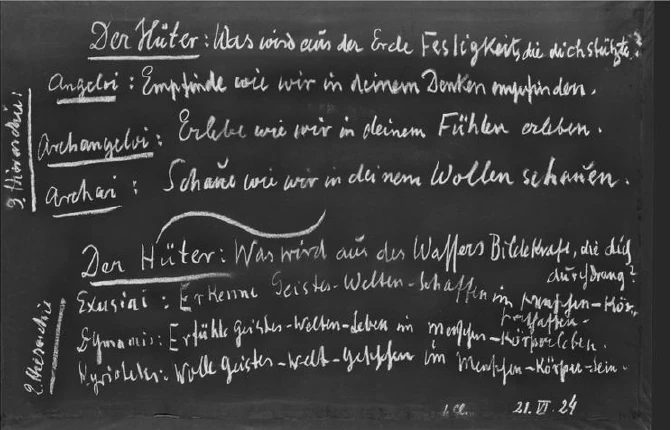 Der Hüter: Was wird aus der Erde Festigkeit, die dich stützte?
Angeloi: Empfinde wie wir in deinem Denken empfinden.
Archangeloi: Erlebe wie wir in deinem Fühlen erleben.
Archai: Schaue wie wir in deinem Wollen schauen.
3. Hierarchie:
Der Hüter: Was wird aus des Wassers Bildekraft, die dich
durchdrang?
Exusiai: Erkenne Geistes-Welten-Schaffen im Menschen-Kör-
perschaffen.
Dynamis: Erfühle Geistes-Welten-Leben im Menschen-Körperleben.
Kyriotetes: Wolle Geistes-Welt-Geschehen im Menschen-Körper-Sein.
2. Hierarchie
21. VI. 24